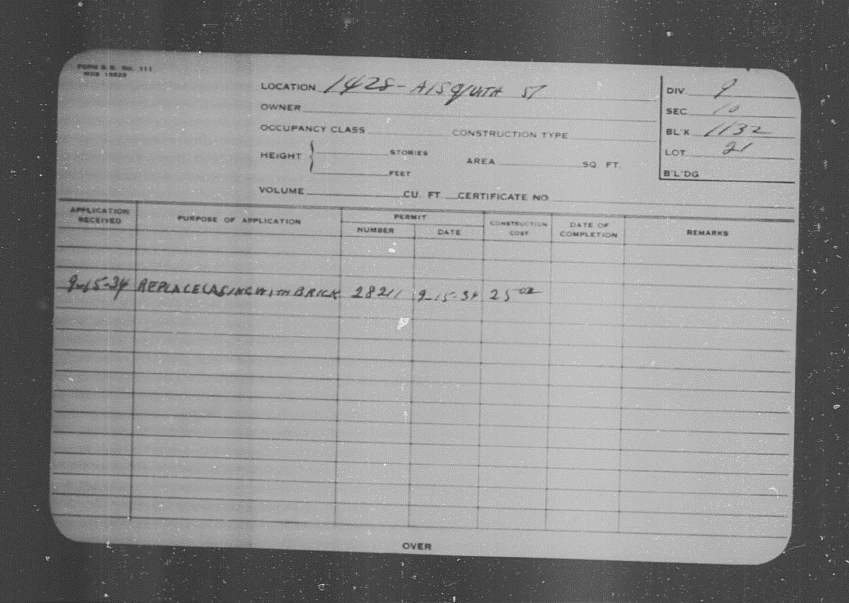 FORM B.B. No. 111
LOCATION 1428 - AISQUITH ST
DIV. 9
OWNER
SEC. 10
OCCUPANCY CLASS CONSTRUCTION TYPE
BL'K 1132
HEIGHT { STORIES
FEET
AREA SQ. FT.
LOT 21
B'L'DG
VOLUME CU. FT. CERTIFICATE NO.
APPLICATION RECEIVED PURPOSE OF APPLICATION PERMIT NUMBER DATE CONSTRUCTION COST DATE OF COMPLETION REMARKS
9-15-34 REPLACE CASING WITH BRICK 28211 9-15-34 25 00
OVER